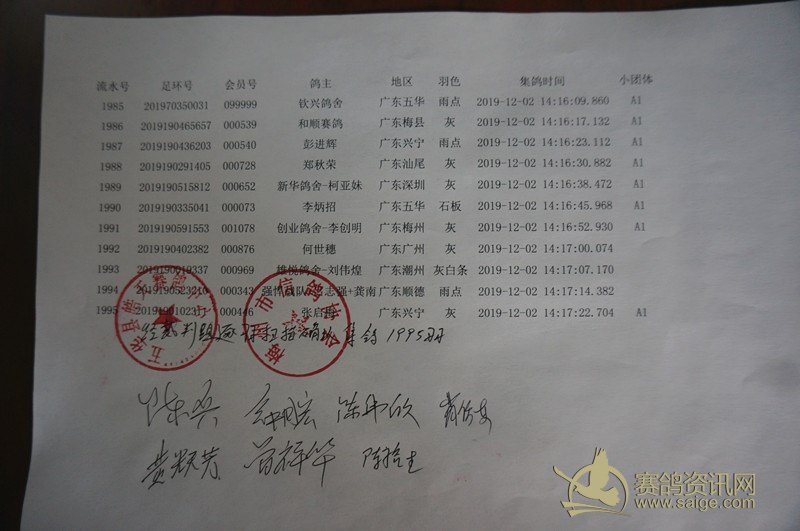 流水号 足环号 会员号 鸽主 地区 羽色 集鸽时间 小团体
1985 201970350031 099999 钦兴鸽舍 广东五华 雨点 2019-12-02 14:16:09.860 A1
1986 2019190465657 000539 和顺赛鸽 广东梅县 灰 2019-12-02 14:16:17.132 A1
1987 2019190436203 000540 彭进辉 广东兴宁 雨点 2019-12-02 14:16:23.112 A1
1988 2019190291405 000728 郑秋荣 广东汕尾 灰 2019-12-02 14:16:30.882 A1
1989 2019190515812 000652 新华鸽舍-柯亚妹 广东深圳 灰 2019-12-02 14:16:38.472 A1
1990 2019190335041 000073 李炳招 广东五华 石板 2019-12-02 14:16:45.968 A1
1991 2019190591553 001078 创业鸽舍-李创明 广东梅州 灰 2019-12-02 14:16:52.930 A1
1992 2019190402382 000876 何世穗 广东广州 灰 2019-12-02 14:17:00.074
1993 2019190019337 000969 雄悦鸽舍-刘伟煌 广东潮州 灰白条 2019-12-02 14:17:07.170
1994 2019190523210 000343 强悍战队 志强+龚南 广东顺德 雨点 2019-12-02 14:17:14.382
1995 000446 张启 广东兴宁 灰 2019-12-02 14:17:22.704 A1
梅州市信鸽协会
经裁判 逐 扫描确认集鸽1995羽
赛鸽资讯网
www.saige.com